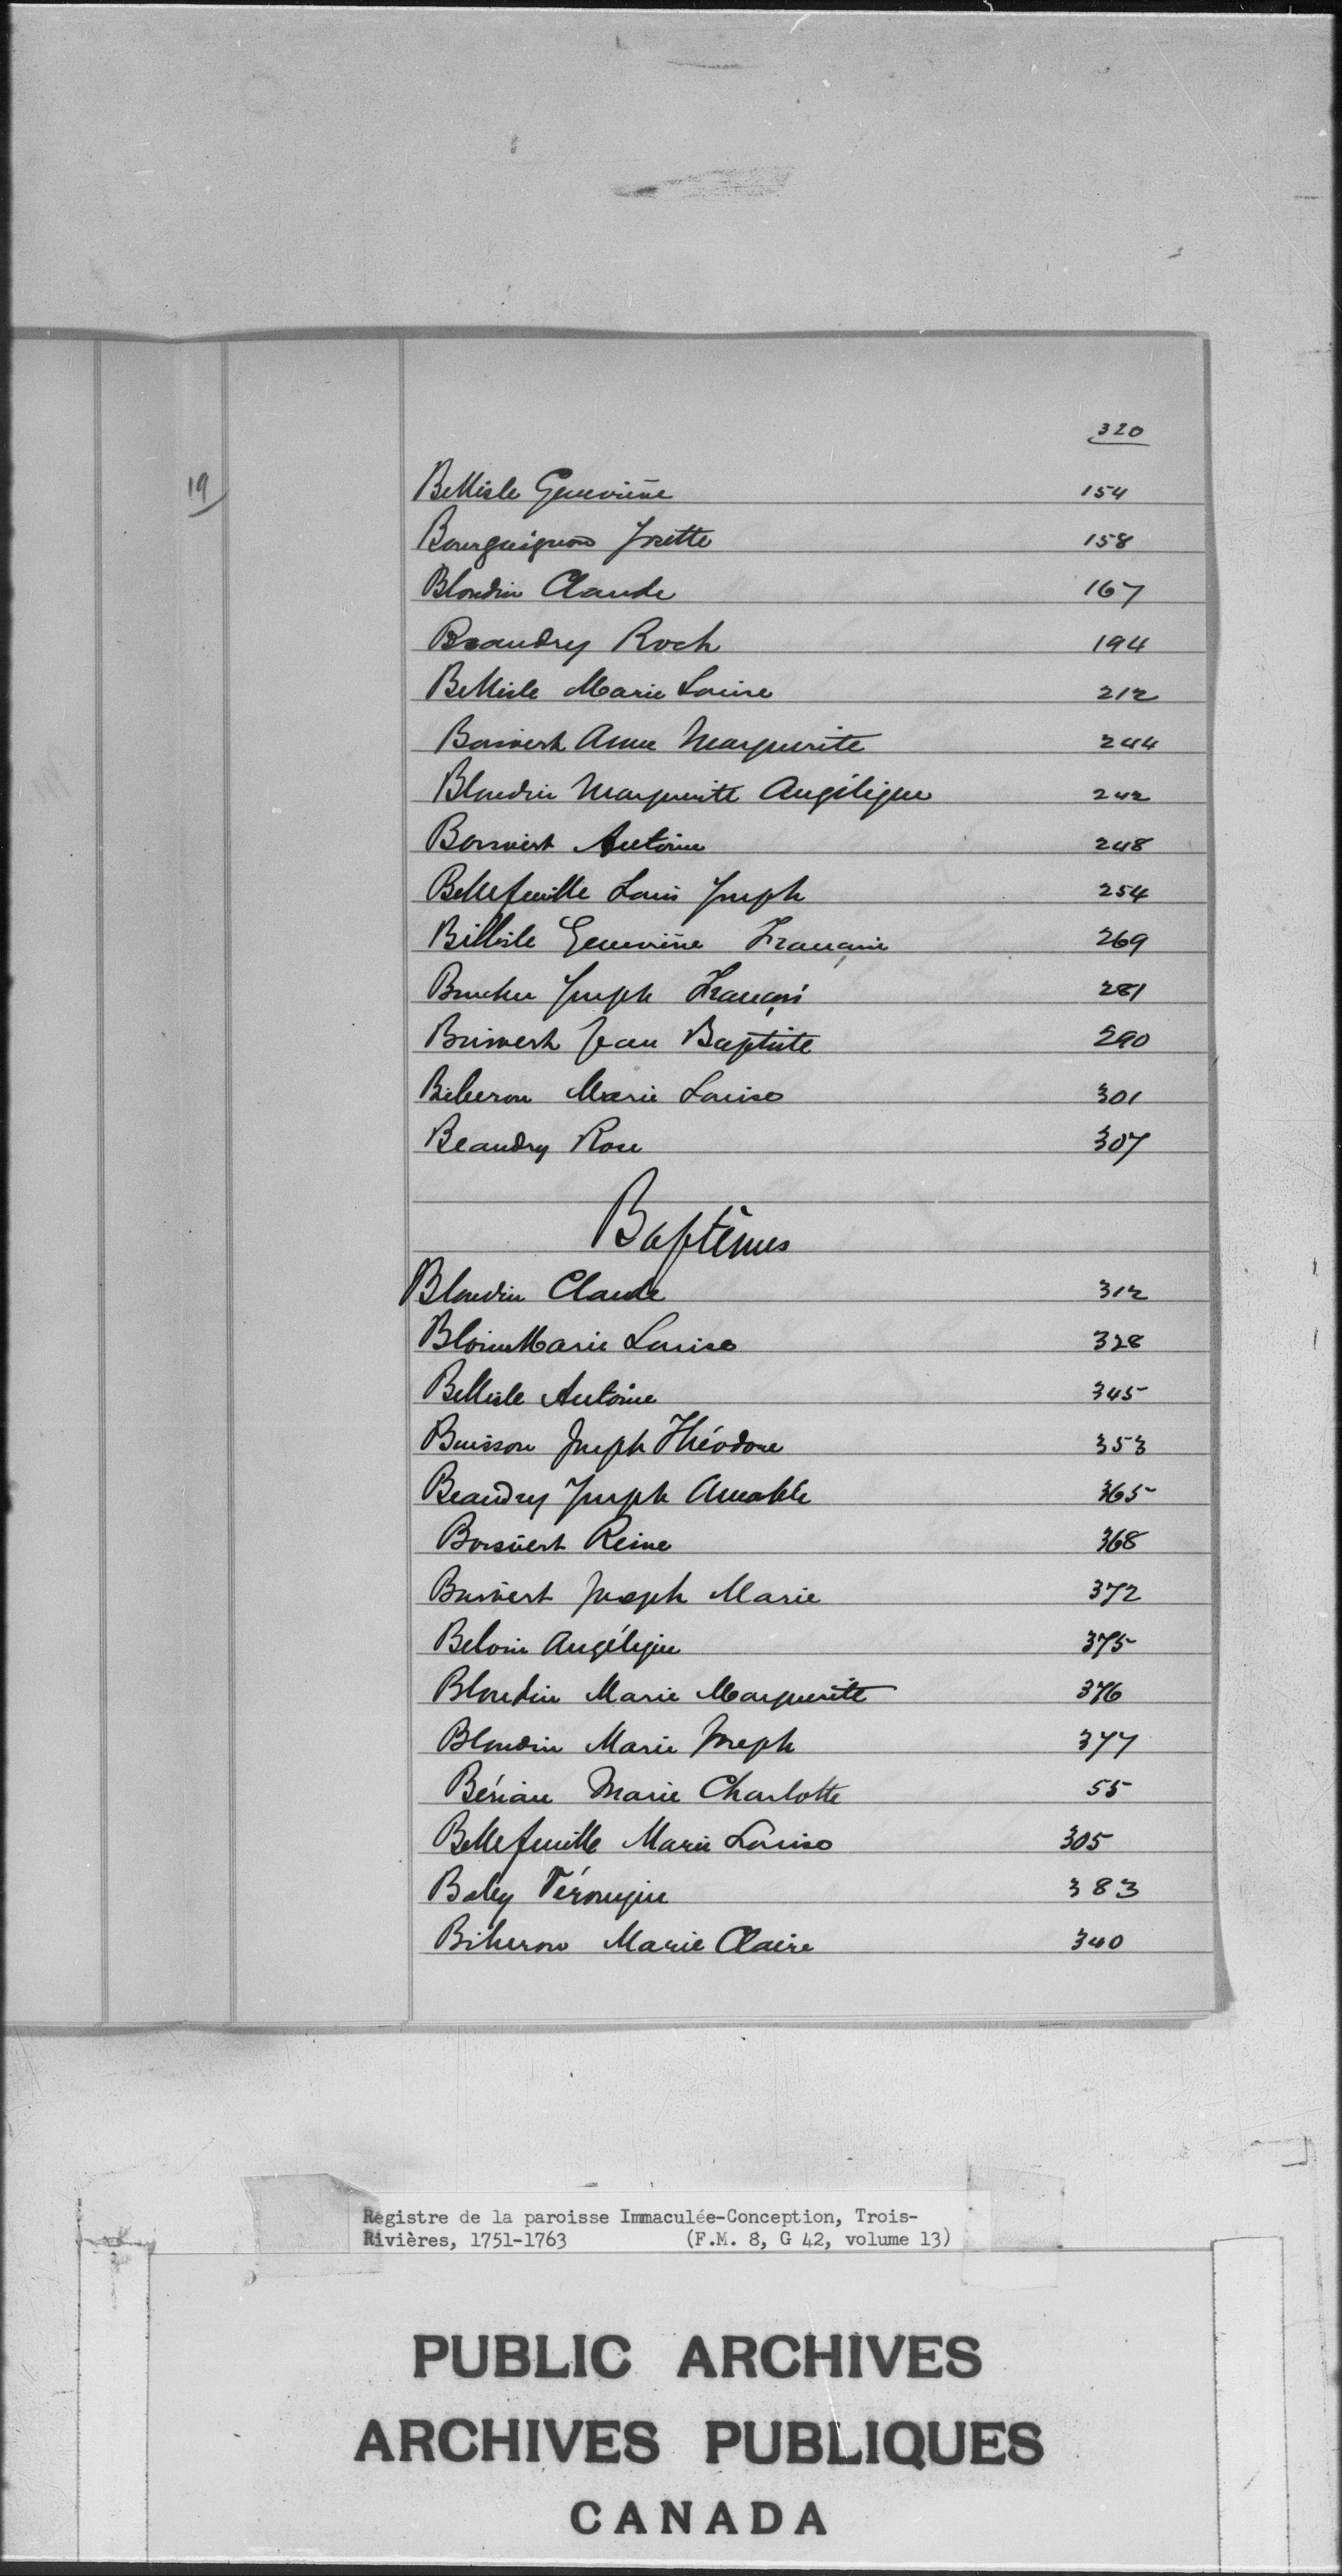 320
19
Bellisle Geneviève 154
Bourguignon Josette 158
Blondin Claude 167
Beaudry Roch 194
Bellisle Marie Louise 212
Boisvert Anne Marguerite 244
Blondin Marguerite Angélique 242
Boisvert Antoine 248
Bellefeuille Louis Joseph 254
Bellisle Geneviève Françoise 269
Boucher Joseph François 281
Boisvert Jean Baptiste 290
Biheron Marie Louise 301
Beaudry Rose 307
Baptêmes
Blondin Claude 312
Marie Louise 328
Bellisle Antoine 345
Buisson Joseph Théodore 353
Beaudry Joseph Amable 365
Boisvert Reine 368
Boisvert Joseph Marie 372
Angélique 375
Blondin Marie Marguerite 376
Blondin Marie Joseph 377
Bériau Marie Charlotte 55
Bellefeuille Marie Louise 305
Véronique 383
Biheron Marie Claire 340
Registre de la paroisse Immaculée-Conception, Trois-
Rivières, 1751-1763 (F.M. 8, G 42, volume 13)
PUBLIC ARCHIVES
ARCHIVES PUBLIQUES
CANADA